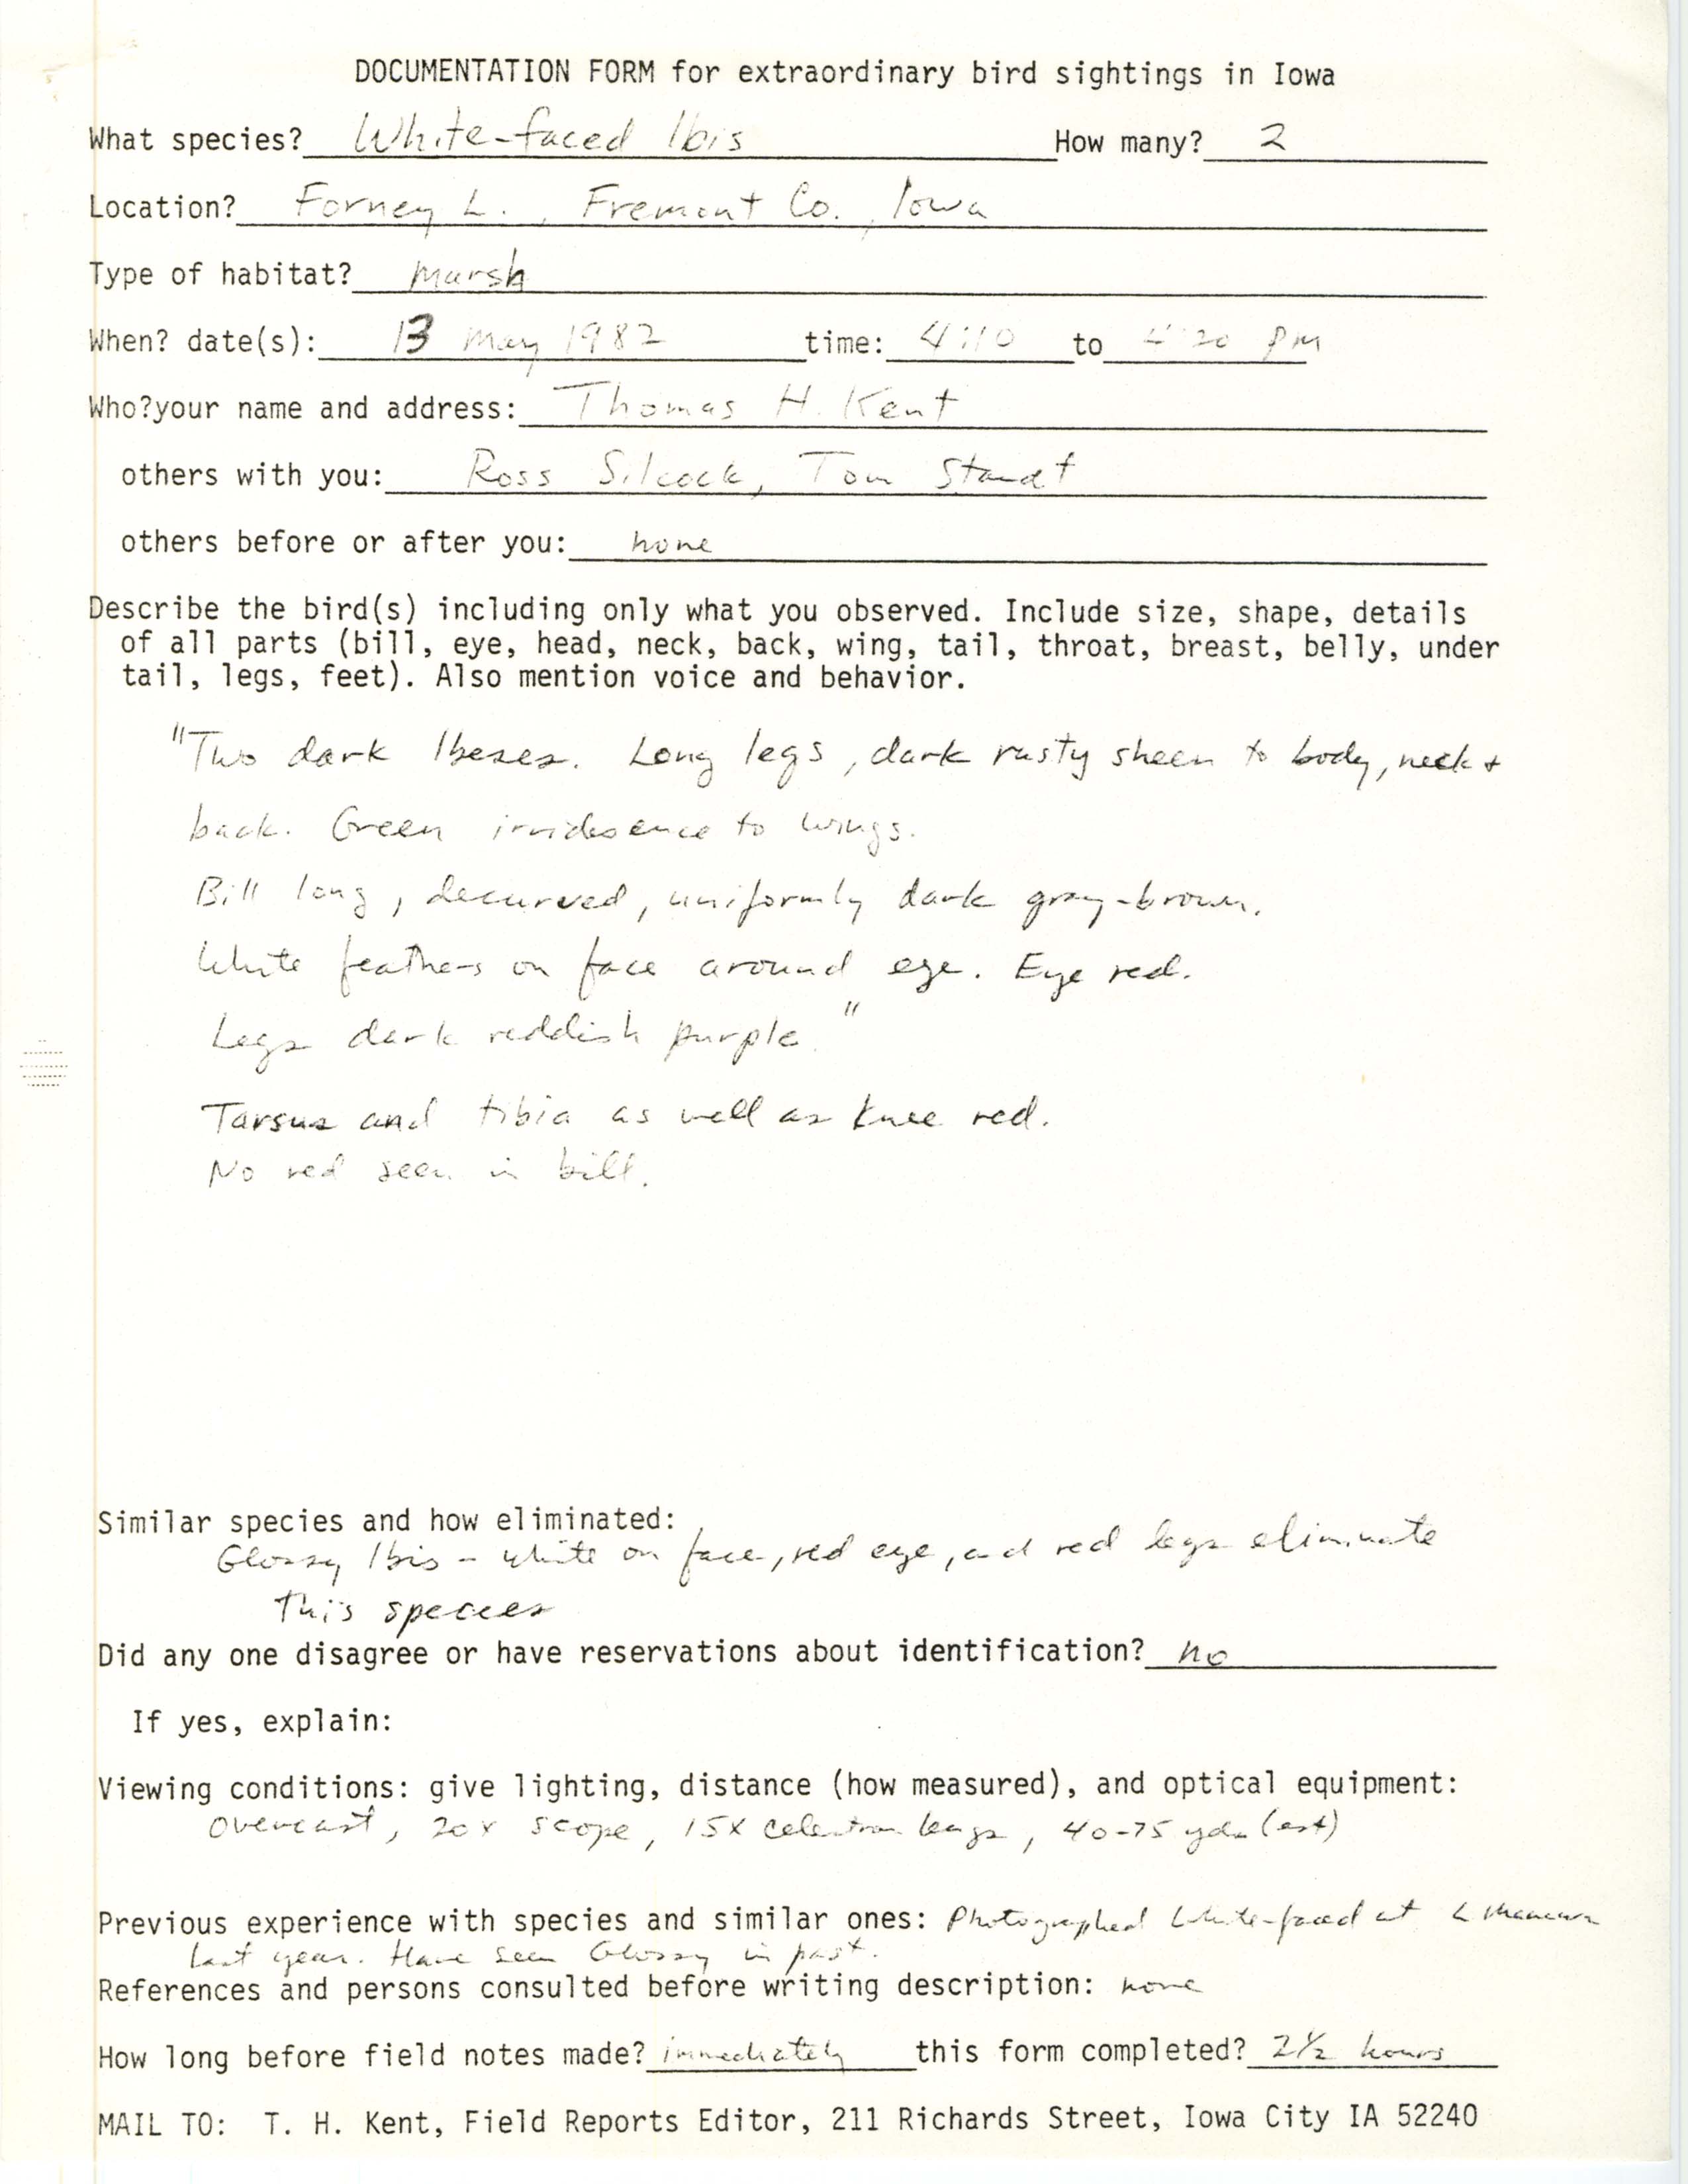 DOCUMENTATION FORM for extraordinary bird sightings in Iowa
What species? White-faced Ibis How many? 2
Location? Forney L., Fremont Co., Iowa
Type of habitat? marsh
When? date(s): 13 May 1982 time: 4:10 to 4:20 pm
Who?your name and address: Thomas H. Kent
others with you: Ross Silcock, Tom Staudt
others before or after you: none
Describe the bird(s) including only what you observed. Include size, shape, details
of all parts (bill, eye, head, neck, back, wing, tail, throat, breast, belly, under
tail, legs, feet). Also mention voice and behavior.
"Two dark Ibeses. Long legs, dark rusty sheen to body, neck +
back. Green irridesence to wings.
Bill long, decurved, uniformly dark gray-brown.
White feathers on face around eye. Eye red.
Legs dark reddish purple."
Tarsus and tibia as well as knee red.
No red seen in bill.
Similar species and how eliminated:
Glossy Ibis - white on face, red eye, and red legs eliminate
this species
Did any one disagree or have reservations about identification? no
If yes, explain:
Viewing conditions: give lighting, distance (how measured), and optical equipment:
Overcast, 20x scope, 15x celestron, 40-75 yds (est)
Previous experience with species and similar ones: Photographed White-faced at L Manawa
last year. Have seen Glossy in past.
References and persons consulted before writing description: none
How long before field notes made? immediately this form completed? 2½ hours
MAIL TO: T. H. Kent, Field Reports Editor, 211 Richards Street, Iowa City IA 52240